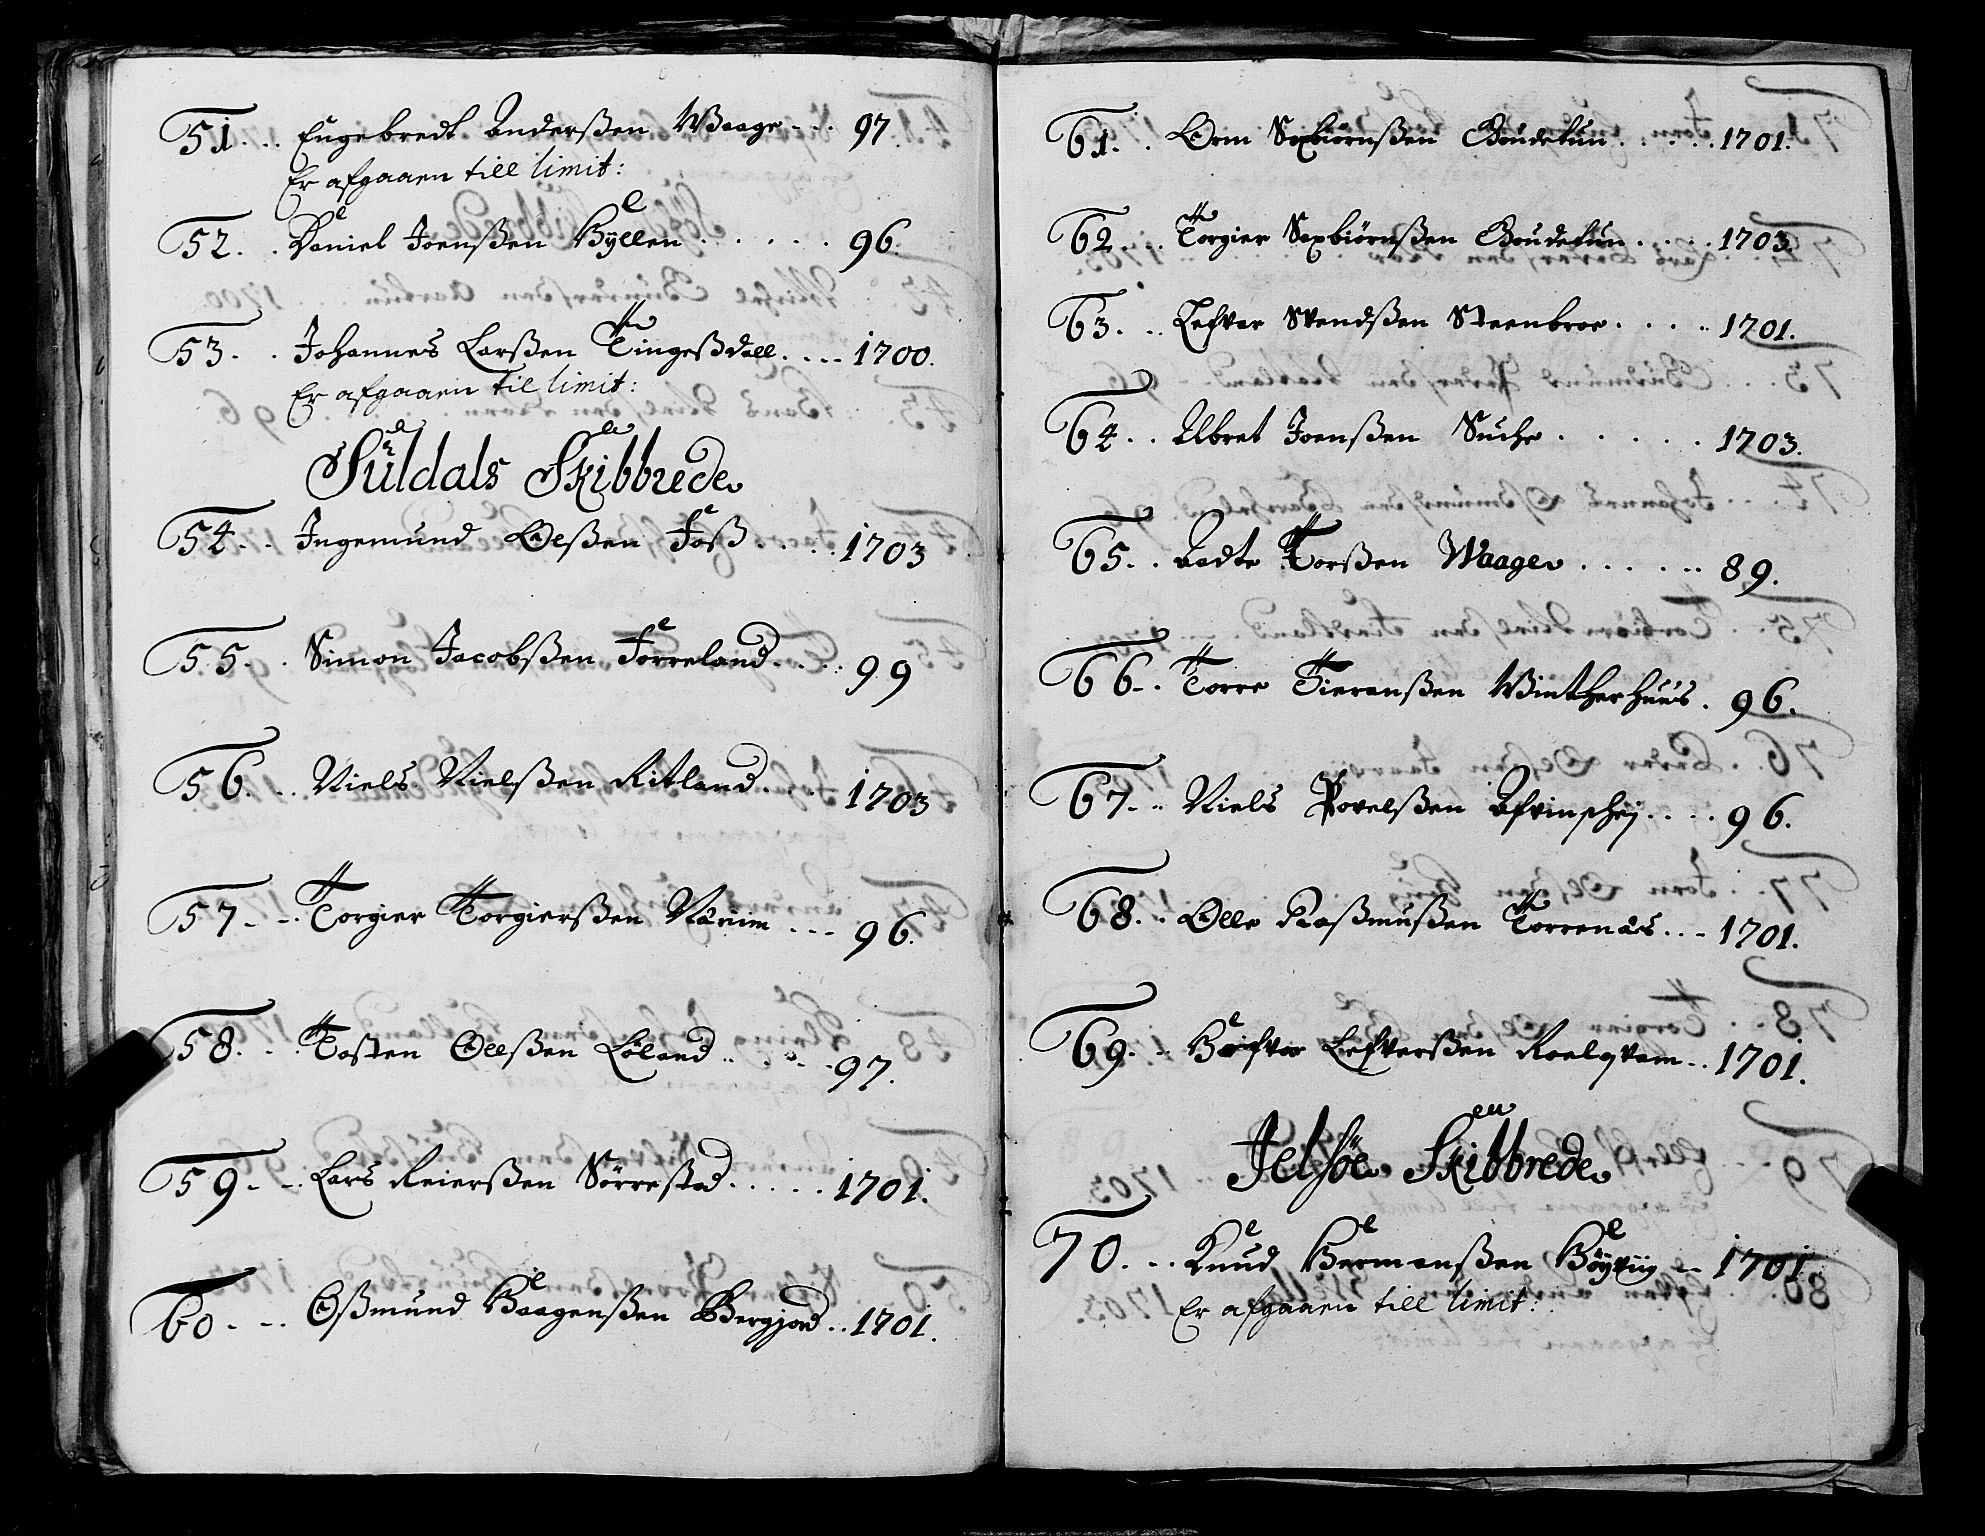 51. .. Engebredt Anderßen Waage - . . 97.
Er afgaaen till limit:
52. . Daniel Joenßen Hyllen . . . . . . 96.
53. . Johannes Larßen Tingeßdall. . - - 1700.
Er afgaaen til limit:
Süldals Skibbrede
54 - . Ingemund Olßen Foß . . . . 1703
55. . Simon Jacobßen Førreland. . . . 99
56. . Niels Nielßen Ritland. . . . 1703
57 - -. Torgier Torgierßen Nærim . - - 96.
58. - . Tosten Ollßen Løland .. . . - - 97.
59 - -. Lars Reierßen Sørrestad. . . . . 1701.
60. - .. Oßmund Haagenßen Bergjord . . 1701.
61. . Orm Saxbiørnßen Goudetun . . . . . 1701.
62. .. Torgier Saxbiørnßen Goudetun . . . . 1703.
63. .. Lefvar Svendßen Steenbroe . . . . .. 1701.
64. . Albret Joenßen Suche . . . . . . 1703.
65. . Aadte Torßen Waage . . . . .. 89.
66 -. Torre Tieranßen Wintherhuus . 96.
67. .. Niels Povelßen Afvinshej . . . . 96.
68. .. Olle Raßmußen Torrenæs . . - 1701.
69. .. Lefverßen Roelqvam . . 1701.
Jelsøe Skibbrede
70. - . Knud Hermanßen -- 1701.
Er afgaaen till limit: